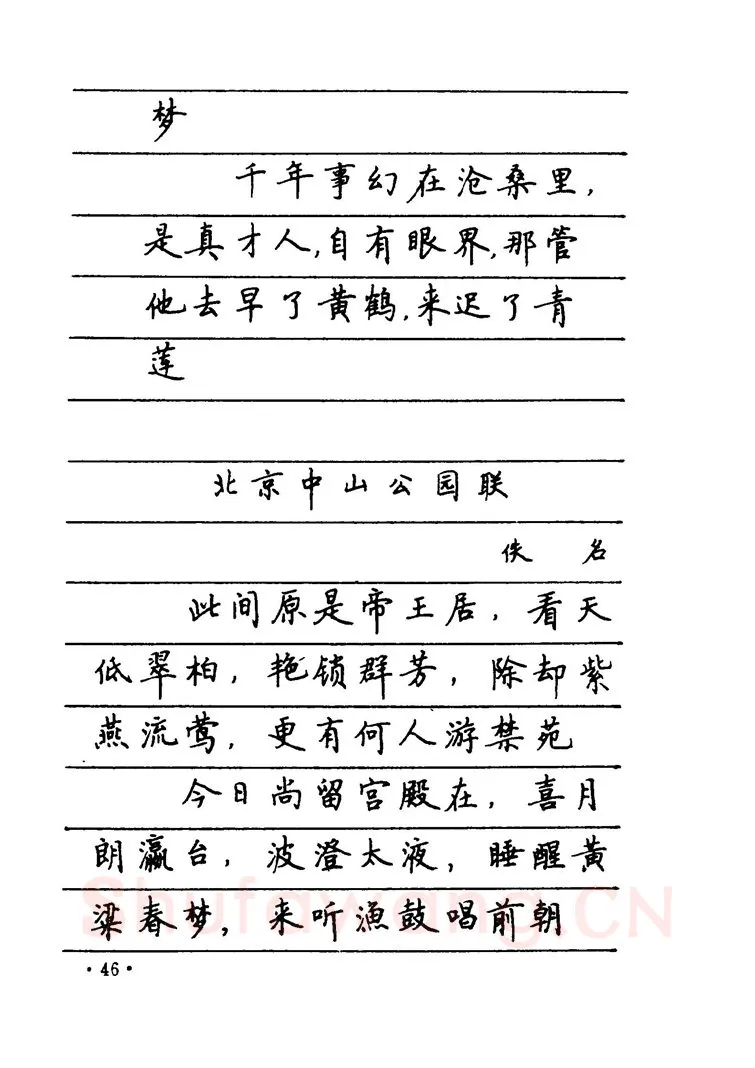 梦
千年事幻在沧桑里，
是真才人，自有眼界，那管
他去早了黄鹤，来迟了青
莲
北京中山公园联
佚 名
此间原是帝王居，看天
低翠柏，艳锁群芳，除却紫
燕流莺，更有何人游禁苑
今日尚留宫殿在，喜月
朗瀛台，波澄太液，睡醒黄
粱春梦，来听渔鼓唱前朝
Shufawang.CN
·46·